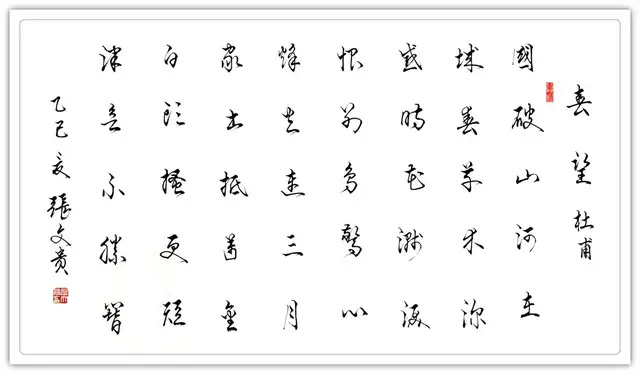 春望 杜甫
國破山河在
城春草木深
感時花濺淚
恨別鳥驚心
烽火連三月
家書抵萬金
白頭搔更短
渾欲不勝簪
乙巳夏 張文貴